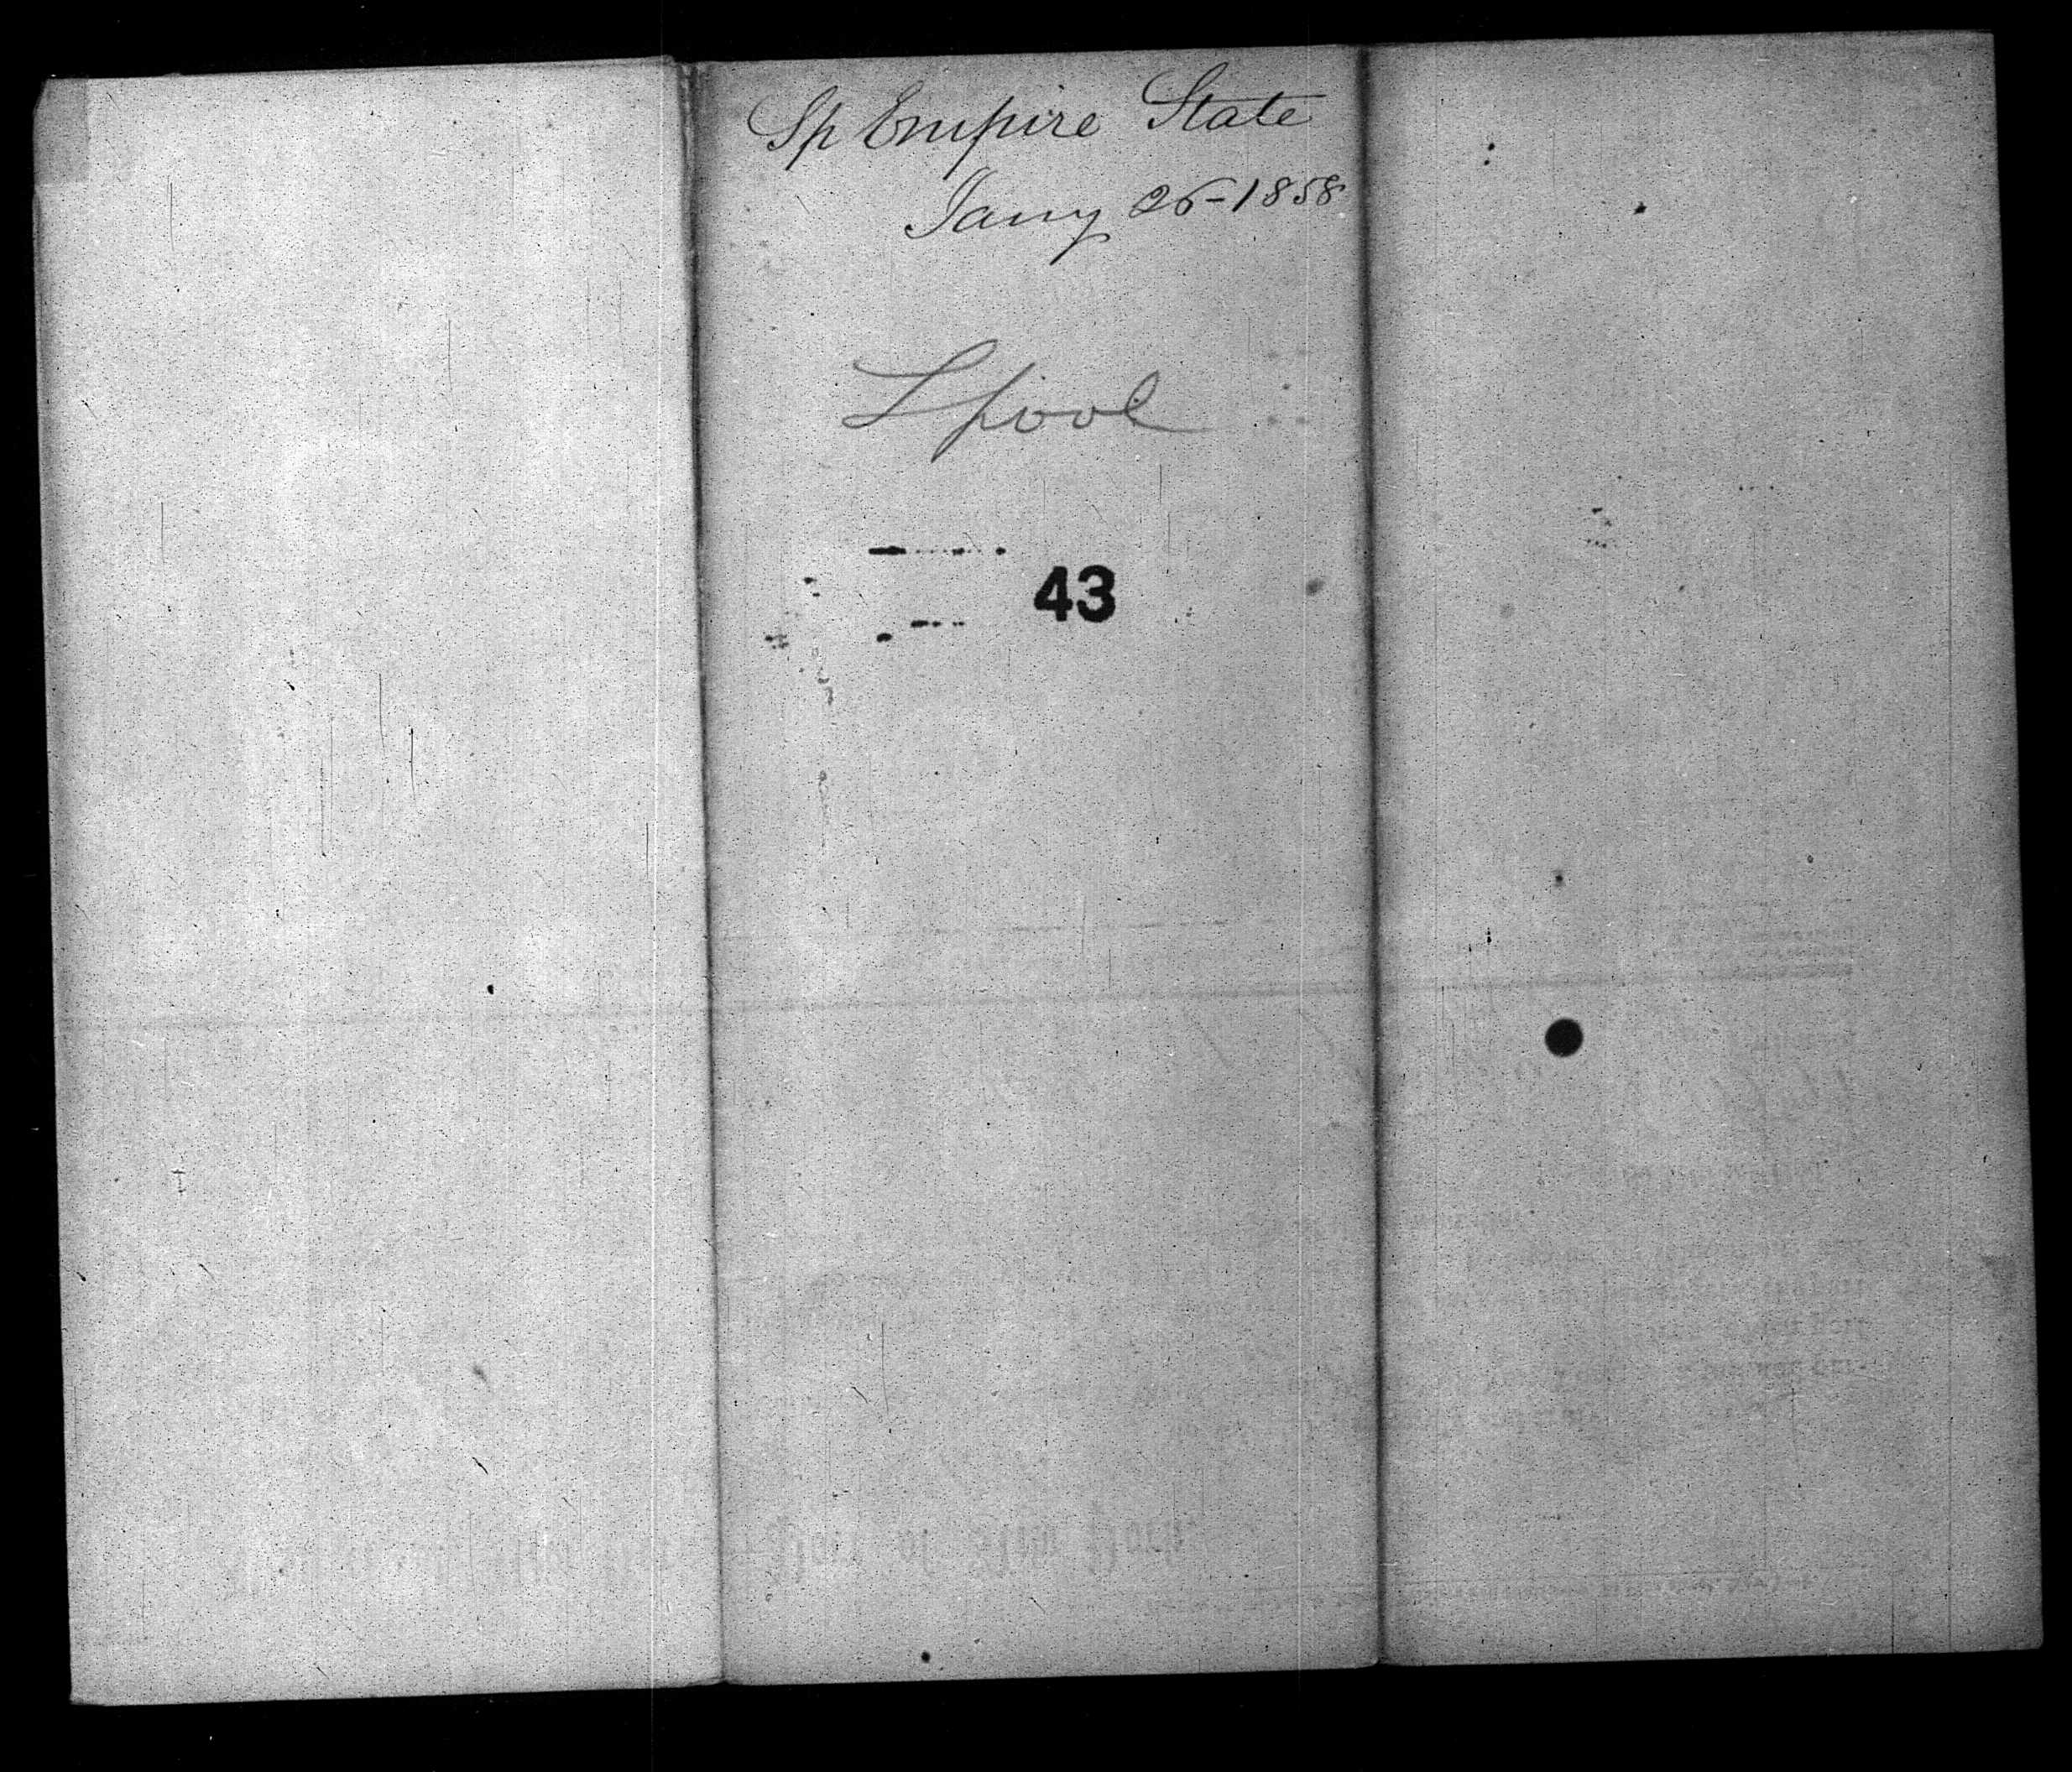 Sp Empire State
Jany 26-1858
Lpool
43